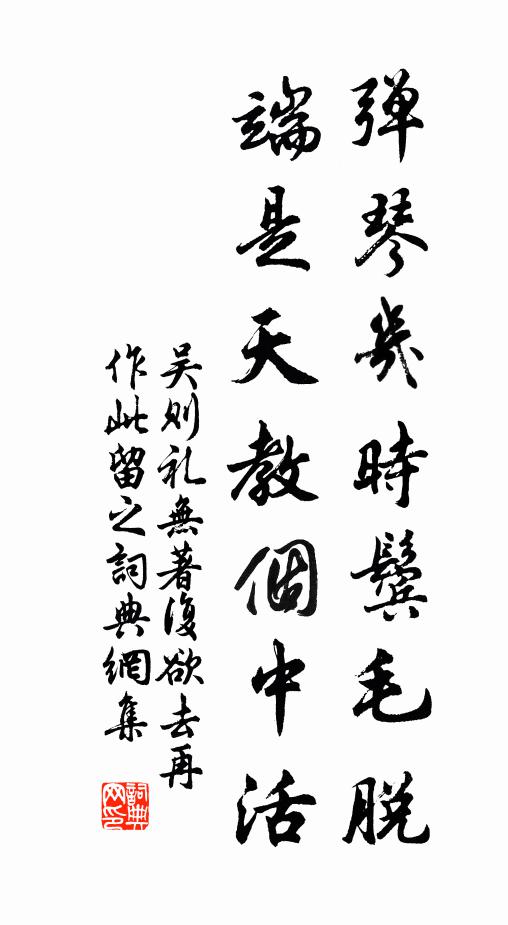 弹琴几時鬓毛脱
端是天教個中活
吴则礼無著復欲去再
作此留之詞典網集
詞典网印